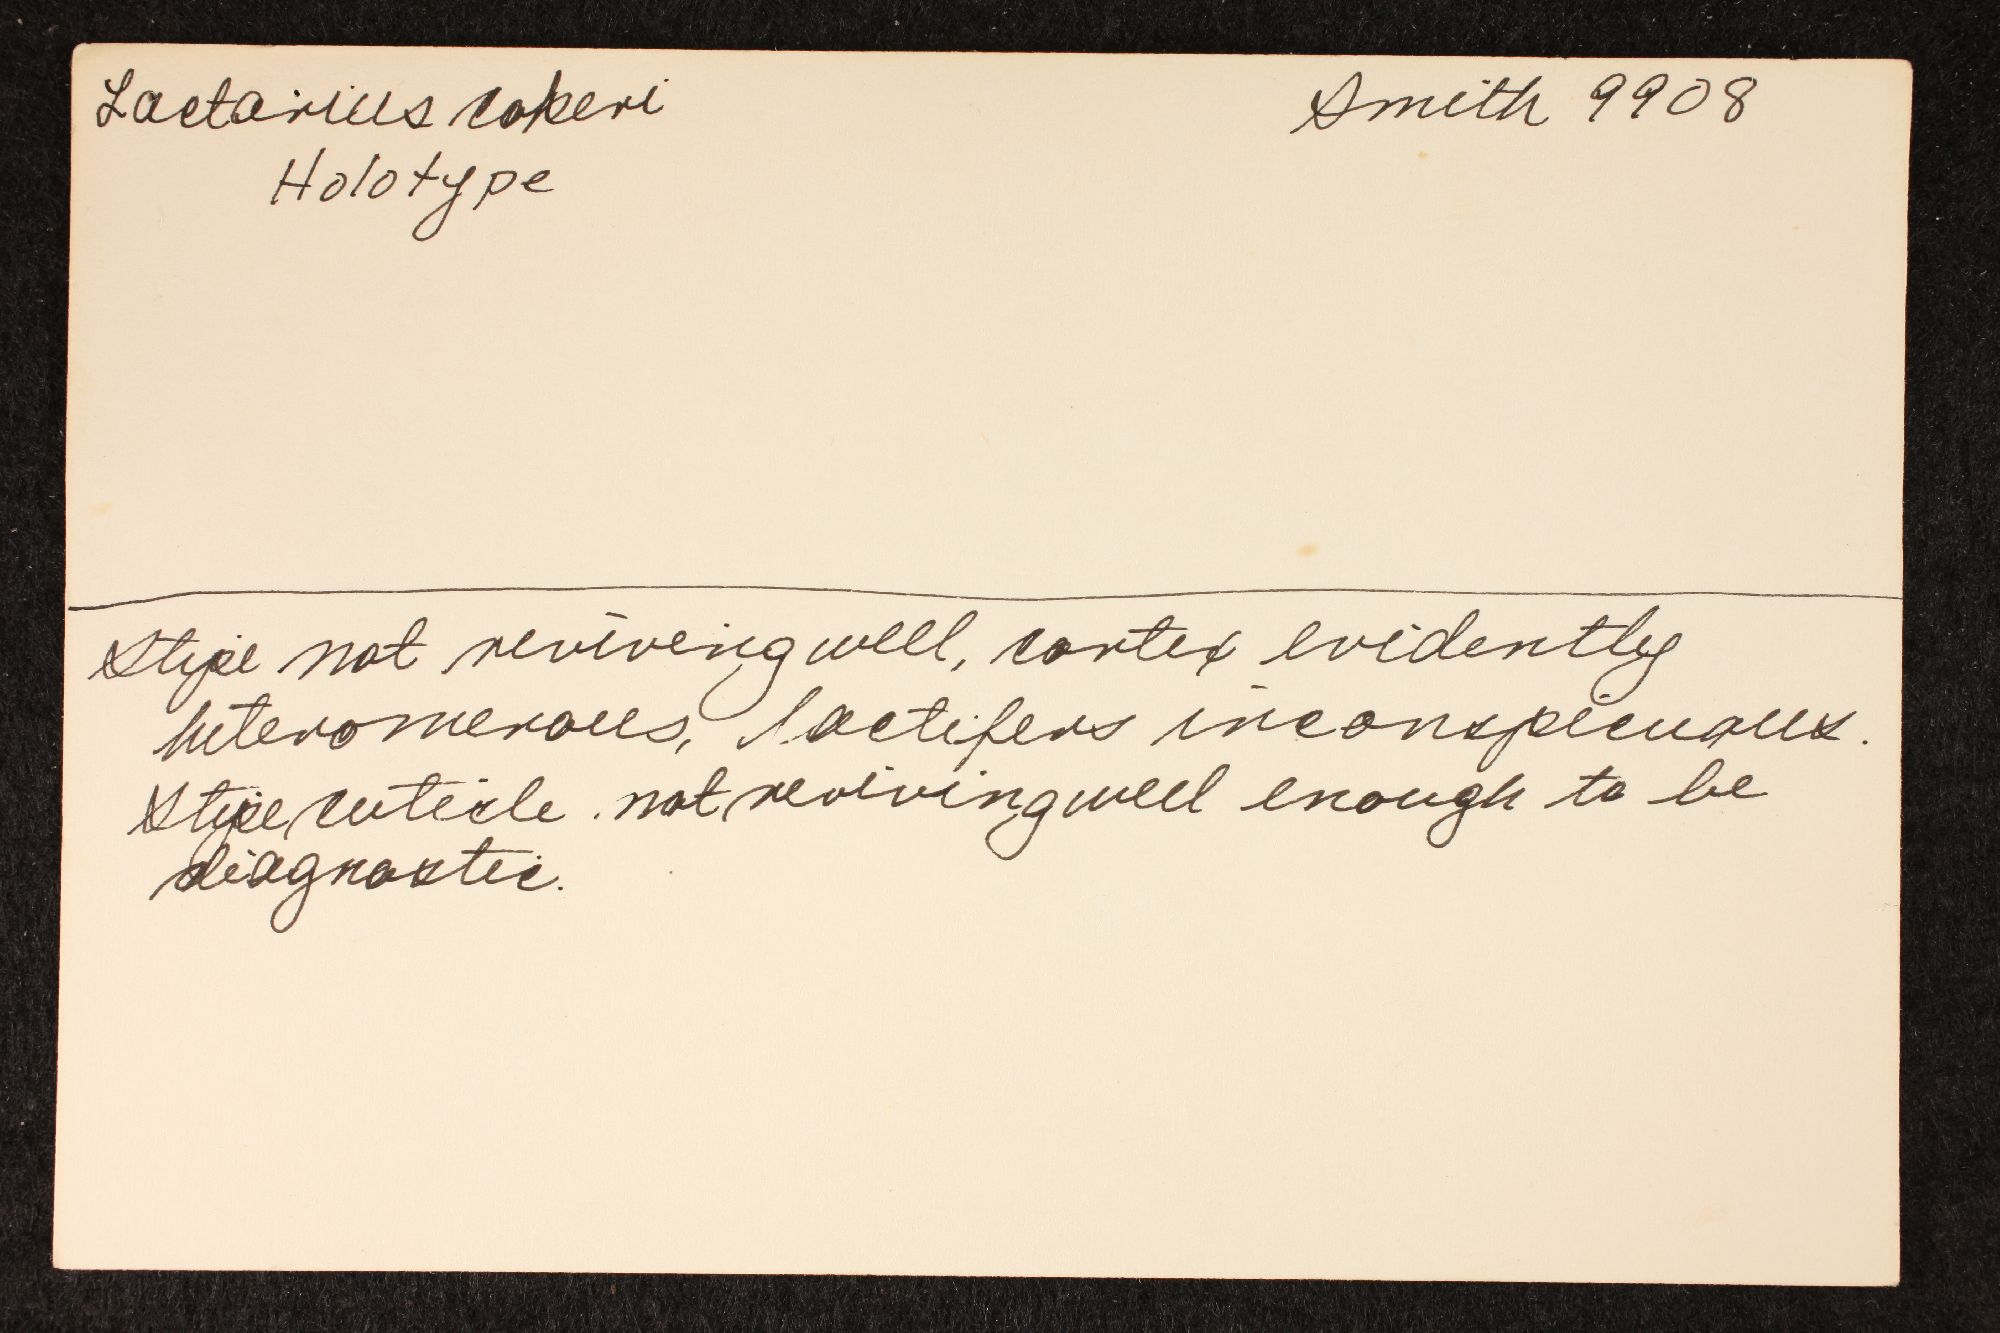 Lactarius cokeri Smith 9908
Holotype
Stipe not reviving well, cortex evidently
heteromerous, lactifers inconspicuous.
Stipe cuticle not reviving well enough to be
diagnostic.